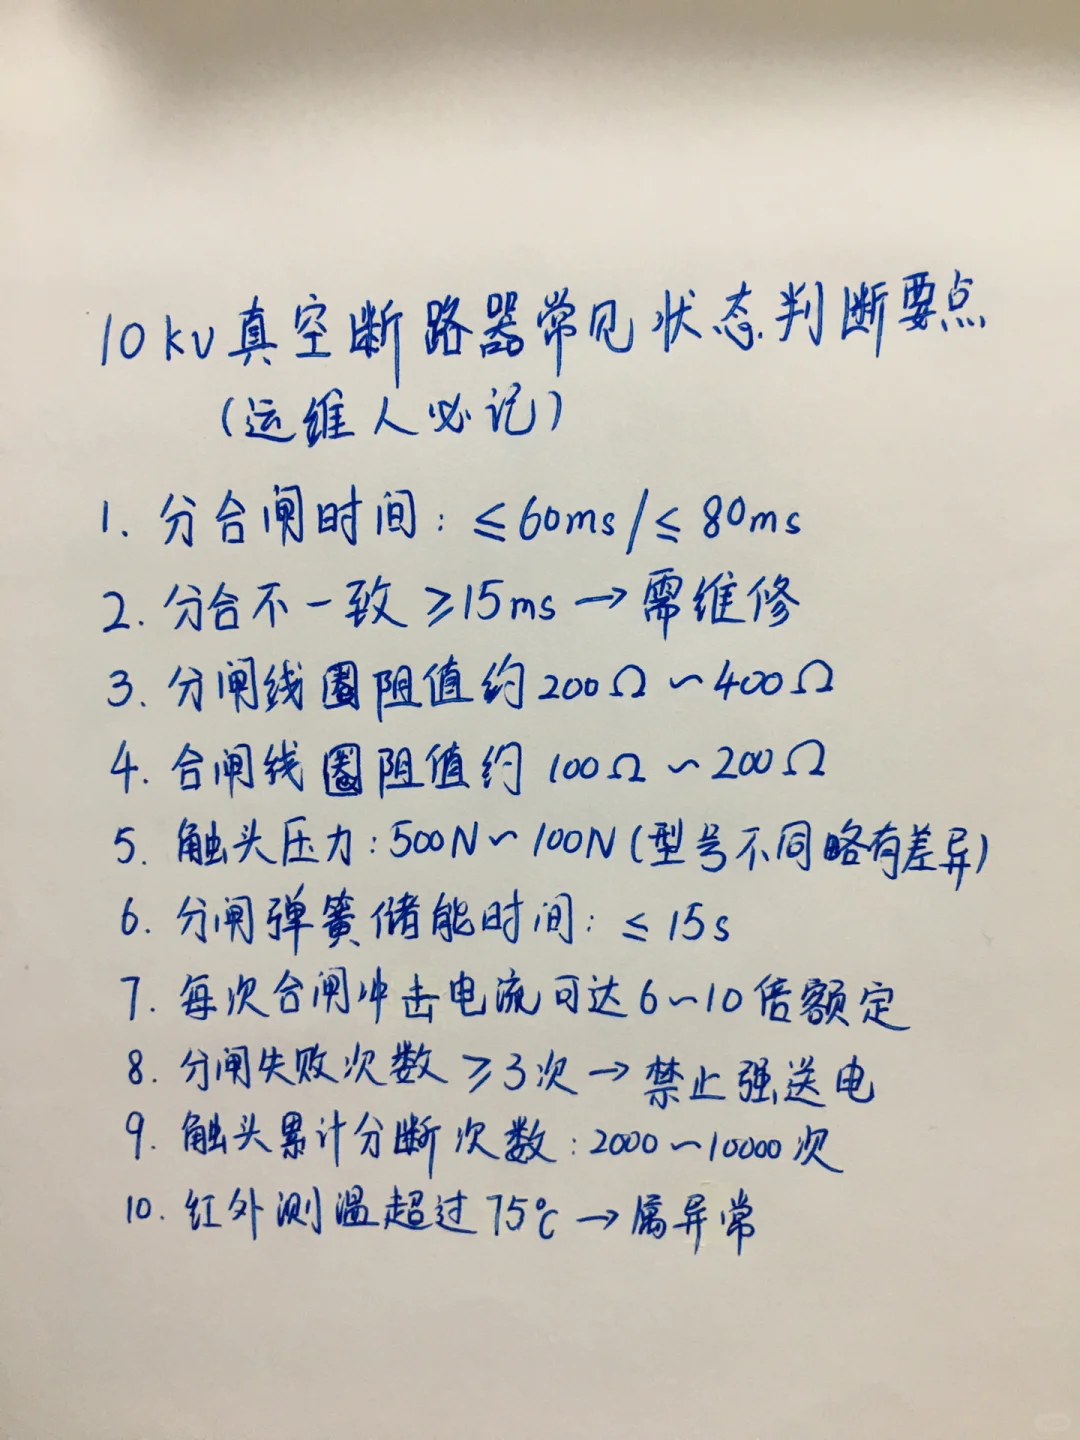 10kv真空断路器常见状态判断要点
(运维人必记)
1. 分合闸时间: ≤60ms/≤80ms
2. 分合不一致≥15ms→需维修
3. 分闸线圈阻值约200Ω~400Ω
4. 合闸线圈阻值约100Ω~200Ω
5. 触头压力:500N~100N(型号不同略有差异)
6. 分闸弹簧储能时间: ≤15s
7. 每次合闸冲击电流可达6~10倍额定
8. 分闸失败次数≥3次→禁止强送电
9. 触头累计分断次数:2000~10000次
10. 红外测温超过75℃→属异常